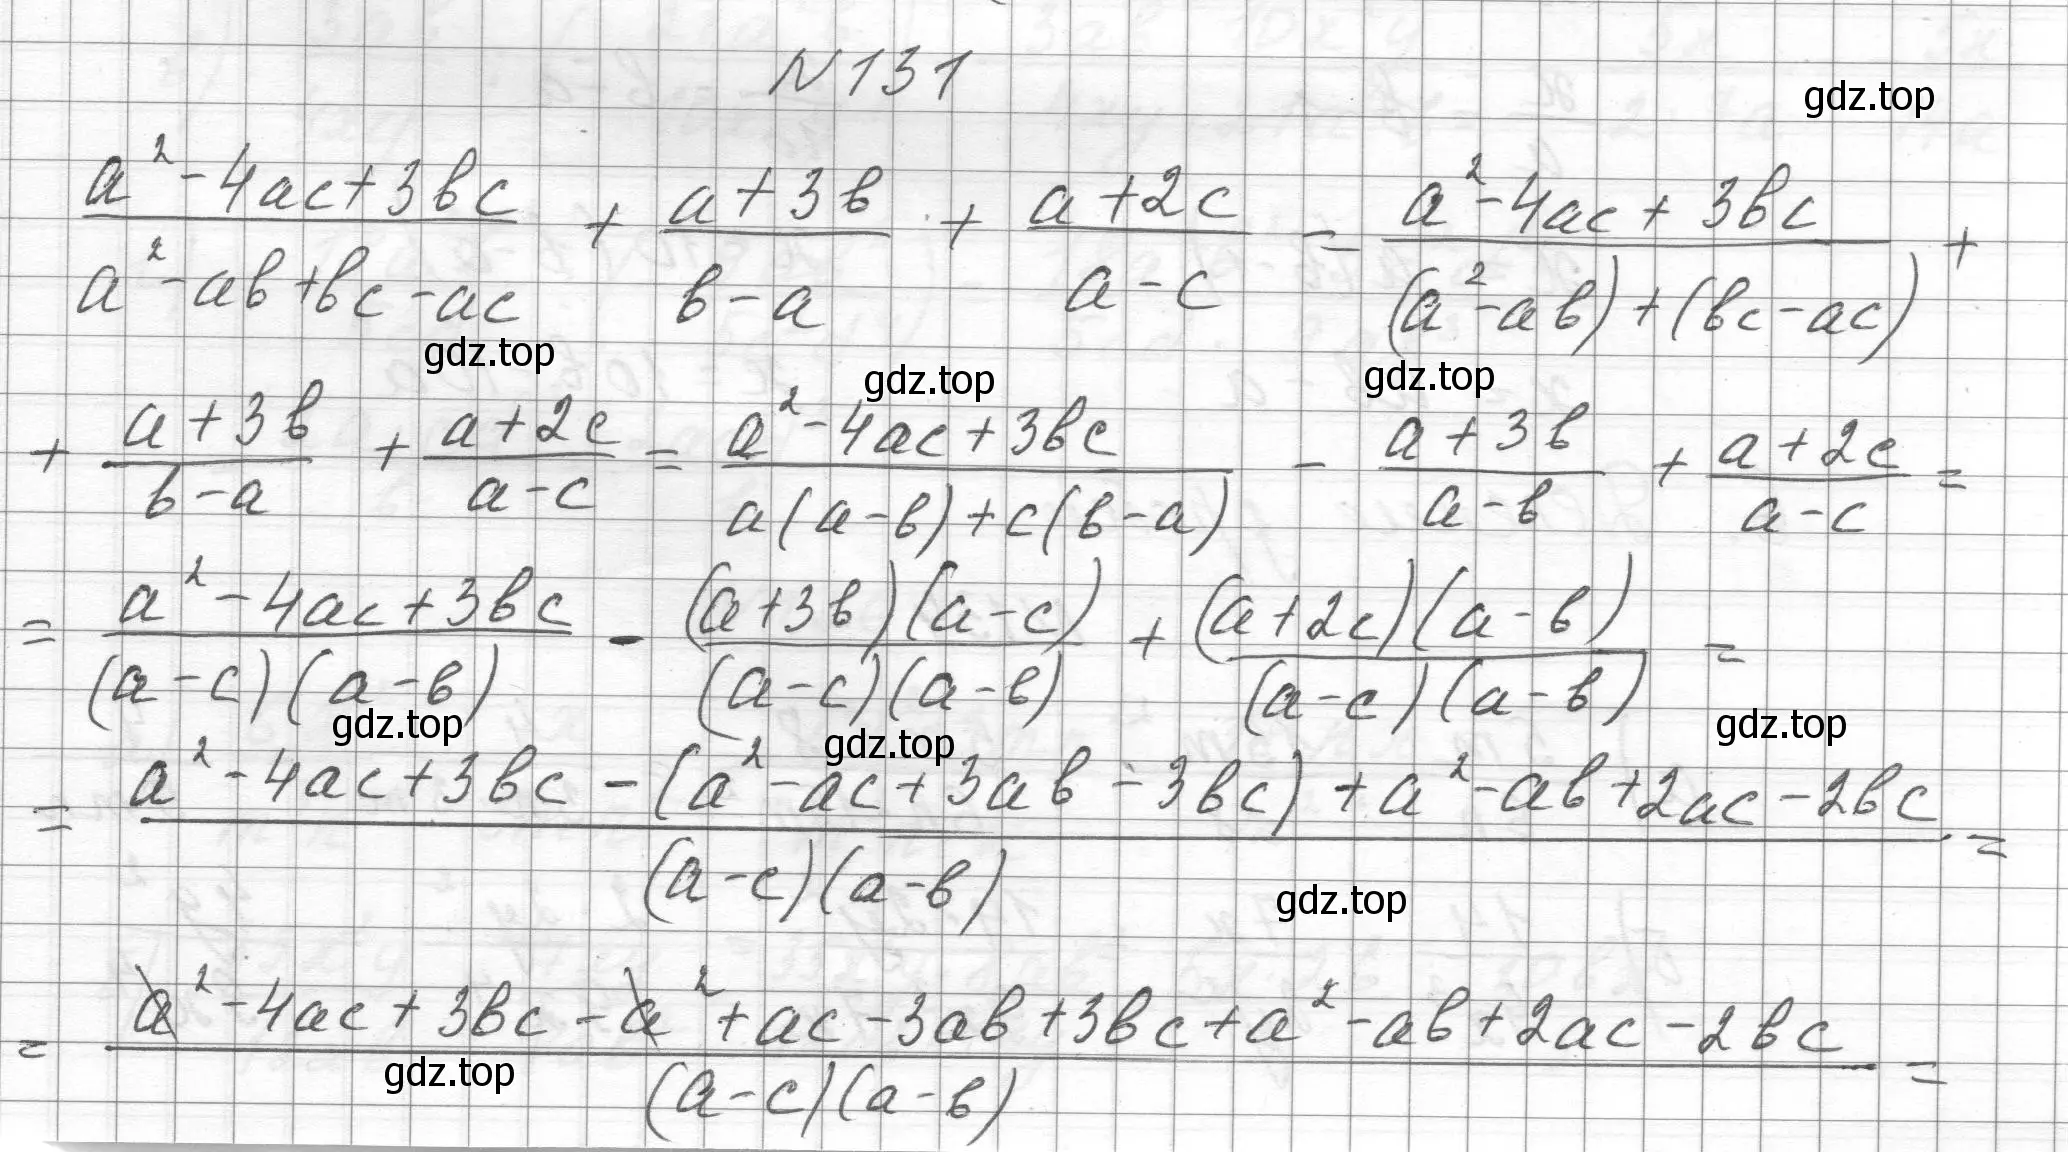 N 131
gdz.top
(a² - 4ac + 3bc)/(a² - ab + bc - ac) + (a + 3b)/(b - a) + (a + 2c)/(a - c) = (a² - 4ac + 3bc)/((a² - ab) + (bc - ac)) +
gdz.top gdz.top gdz.top
+ (a + 3b)/(b - a) + (a + 2c)/(a - c) = (a² - 4ac + 3bc)/(a(a - b) + c(b - a)) - (a + 3b)/(a - b) + (a + 2c)/(a - c) =
= (a² - 4ac + 3bc)/((a - c)(a - b)) - ((a + 3b)(a - c))/((a - c)(a - b)) + ((a + 2c)(a - b))/((a - c)(a - b)) =
gdz.top gdz.top gdz.top
= (a² - 4ac + 3bc - (a² - ac + 3ab - 3bc) + a² - ab + 2ac - 2bc)/((a - c)(a - b)) =
gdz.top
= (a² - 4ac + 3bc - a² + ac - 3ab + 3bc + a² - ab + 2ac - 2bc)/((a - c)(a - b)) =
gdz.top